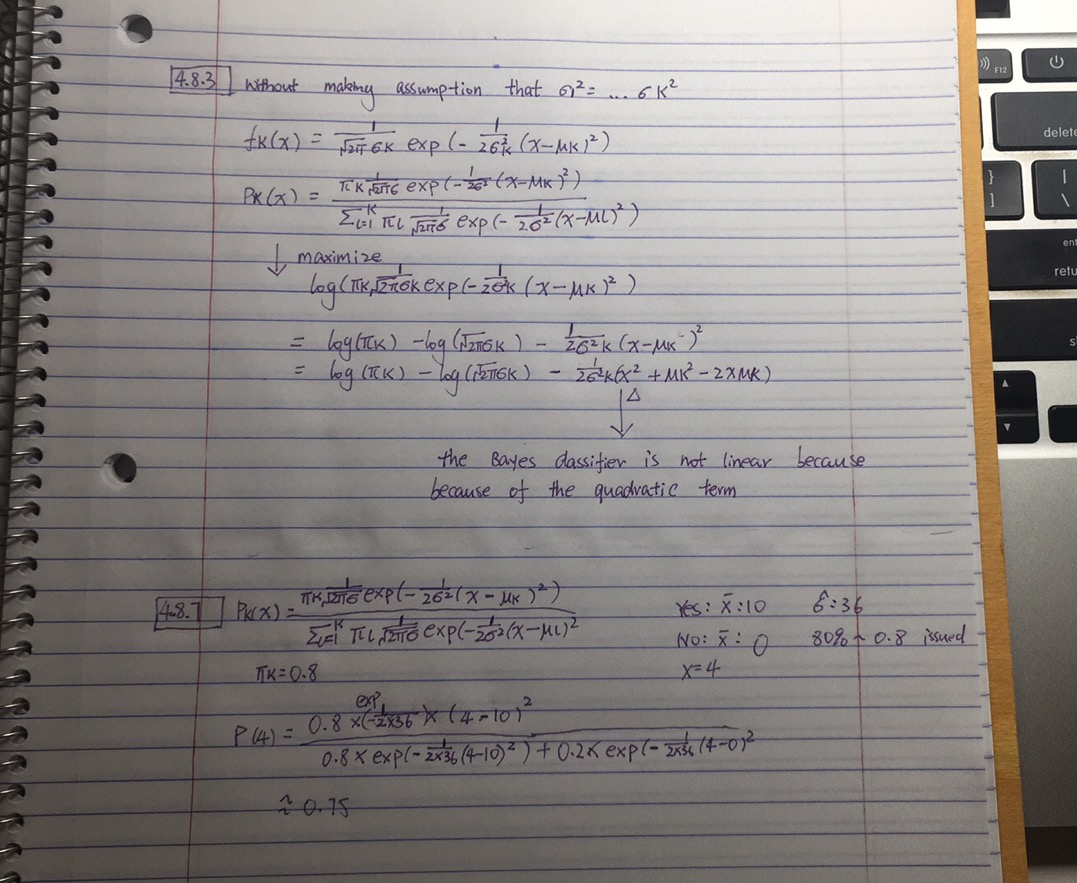 4.8.3 Without making assumption that σ1² = ... σK²
fK(x) = 1/(√2π σK) exp(- 1/(2σK²) (x-μK)²)
PK(x) = πK 1/(√2πσ) exp(- 1/(2σ²) (x-μK)²) / Σ_{l=1}^K πl 1/(√2πσ) exp(- 1/(2σ²) (x-μl)²)
↓ maximize
log(πK 1/(√2πσK) exp(- 1/(2σ²K) (x-μK)²)
= log(πK) - log(√2πσK) - 1/(2σ²K) (x-μK)²
= log(πK) - log(√2πσK) - 1/(2σ²K) (x² + μK² - 2xμK)
the Bayes classifier is not linear because
because of the quadratic term
4.8.7 PK(x) = πK 1/(√2πσ) exp(- 1/(2σ²) (x-μK)²) / Σ_{l=1}^K πl 1/(√2πσ) exp(- 1/(2σ²) (x-μl)²
Yes: x̄:10 σ̂:36
No: x̄: 0 80% ~ 0.8 issued
πK=0.8
x=4
P(4) = 0.8 × exp(- 1/(2×36)) × (4-10)² / 0.8 × exp(- 1/(2×36) (4-10)²) + 0.2× exp(- 1/(2×36) (4-0)²
≈ 0.75
F12
delete
}
]
|
\